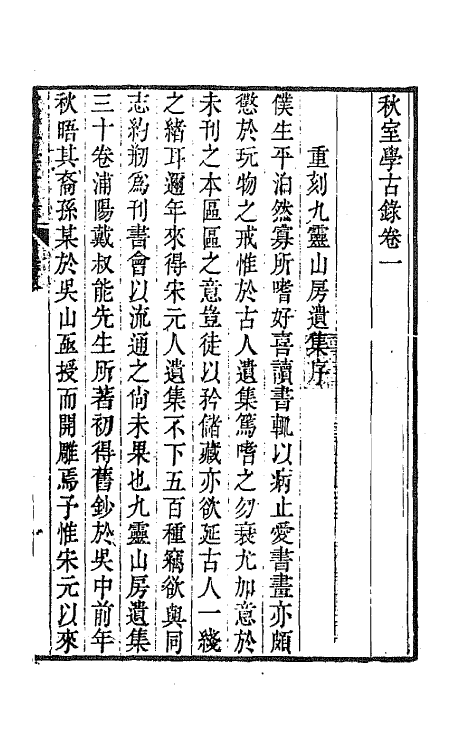 秋室學古錄卷一
重刻九靈山房遺集序
僕生平泊然寡所嗜好喜讀書輒以病止愛書畫亦頗
懲於玩物之戒惟於古人遺集篤嗜之勿衰尤加意於
未刊之本區區之意豈徒以矜儲藏亦欲延古人一綫
之緒耳邇年來得宋元人遺集不下五百種竊欲與同
志約剏爲刊書會以流通之尙未果也九靈山房遺集
三十卷浦陽戴叔能先生所著初得舊鈔於吳中前年
秋晤其裔孫某於吳山亟授而開雕焉子惟宋元以來